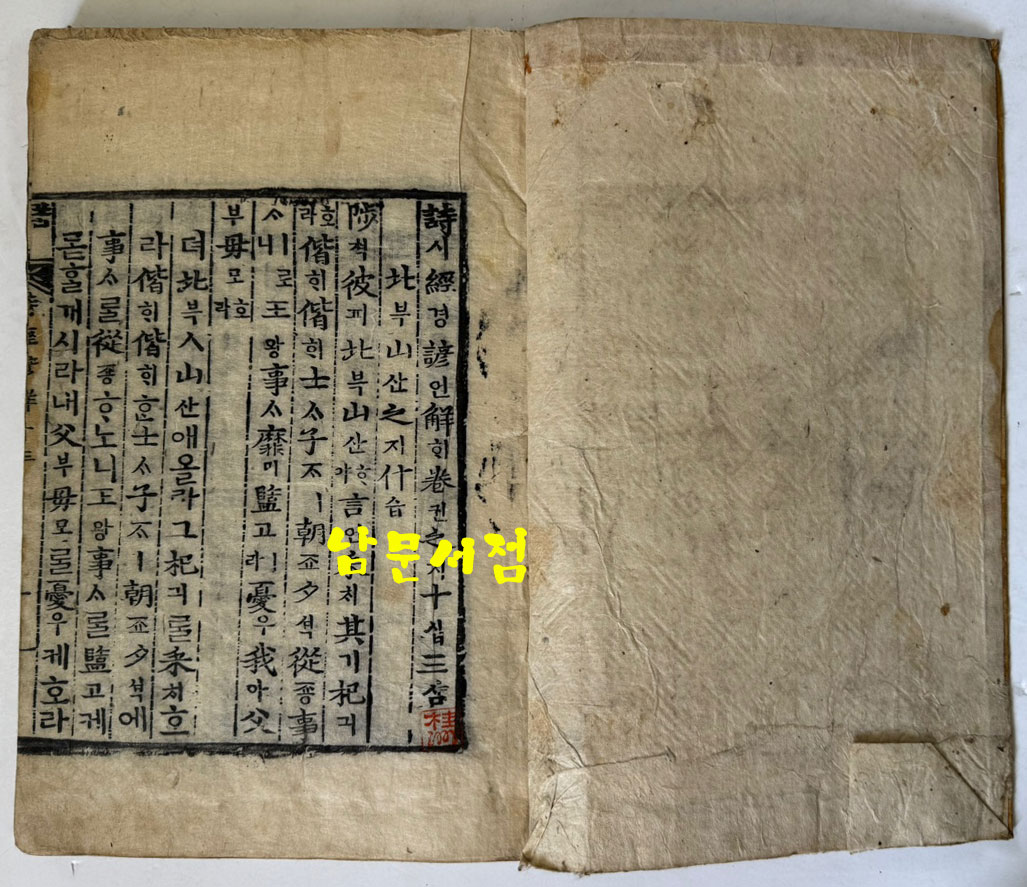 詩시經경諺언解ᄒᆡ卷권之지十십三삼
北부山산之지什습
陟쳑彼피北븍山산ᄒᆞ야言언ᄎᆡ其기杞긔
호라偕ᄒᆡ偕ᄒᆡ士ᄉᆞ子ᄌᆞㅣ朝죠夕셕從죵事
ᄉᆞ王왕事ᄉᆞ靡미盬고ㅣ라憂우我아父
부母모호라
뎌北븍山산애올라그杞긔ᄅᆞᆯ采ᄎᆡ호
라偕ᄒᆡ偕ᄒᆡᄒᆞᆫ士ᄉᆞ子ᄌᆞㅣ朝죠夕셕에
事ᄉᆞᄅᆞᆯ從죵ᄒᆞ노니王왕事ᄉᆞᄅᆞᆯ盬고케
몯ᄒᆞᆯ개시라내父부母모ᄅᆞᆯ憂우케호라
남문서점